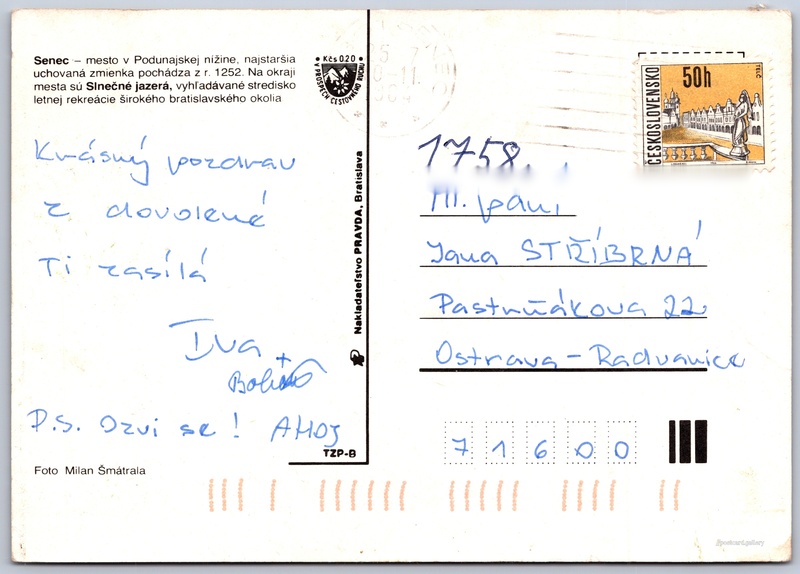 Senec – mesto v Podunajskej nížine, najstaršia
uchovaná zmienka pochádza z r. 1252. Na okraji
mesta sú Slnečné jazerá, vyhľadávané stredisko
letnej rekreácie širokého bratislavského okolia
Kčs 0,20
V PROSPECH CESTOVNÉHO RUCHU
ČESKOSLOVENSKO
50h
TELČ
Krásný pozdrav
z dovolené
Ti zasílá
Iva
+
P.S. Ozvi se! AHOJ
Nakladateľstvo PRAVDA, Bratislava
TZP-B
Foto Milan Šmátrala
1758
Ml. paní
Jana STŘÍBRNÁ
Pastrňákova 22
Ostrava – Radvanice
7 1 6 0 0